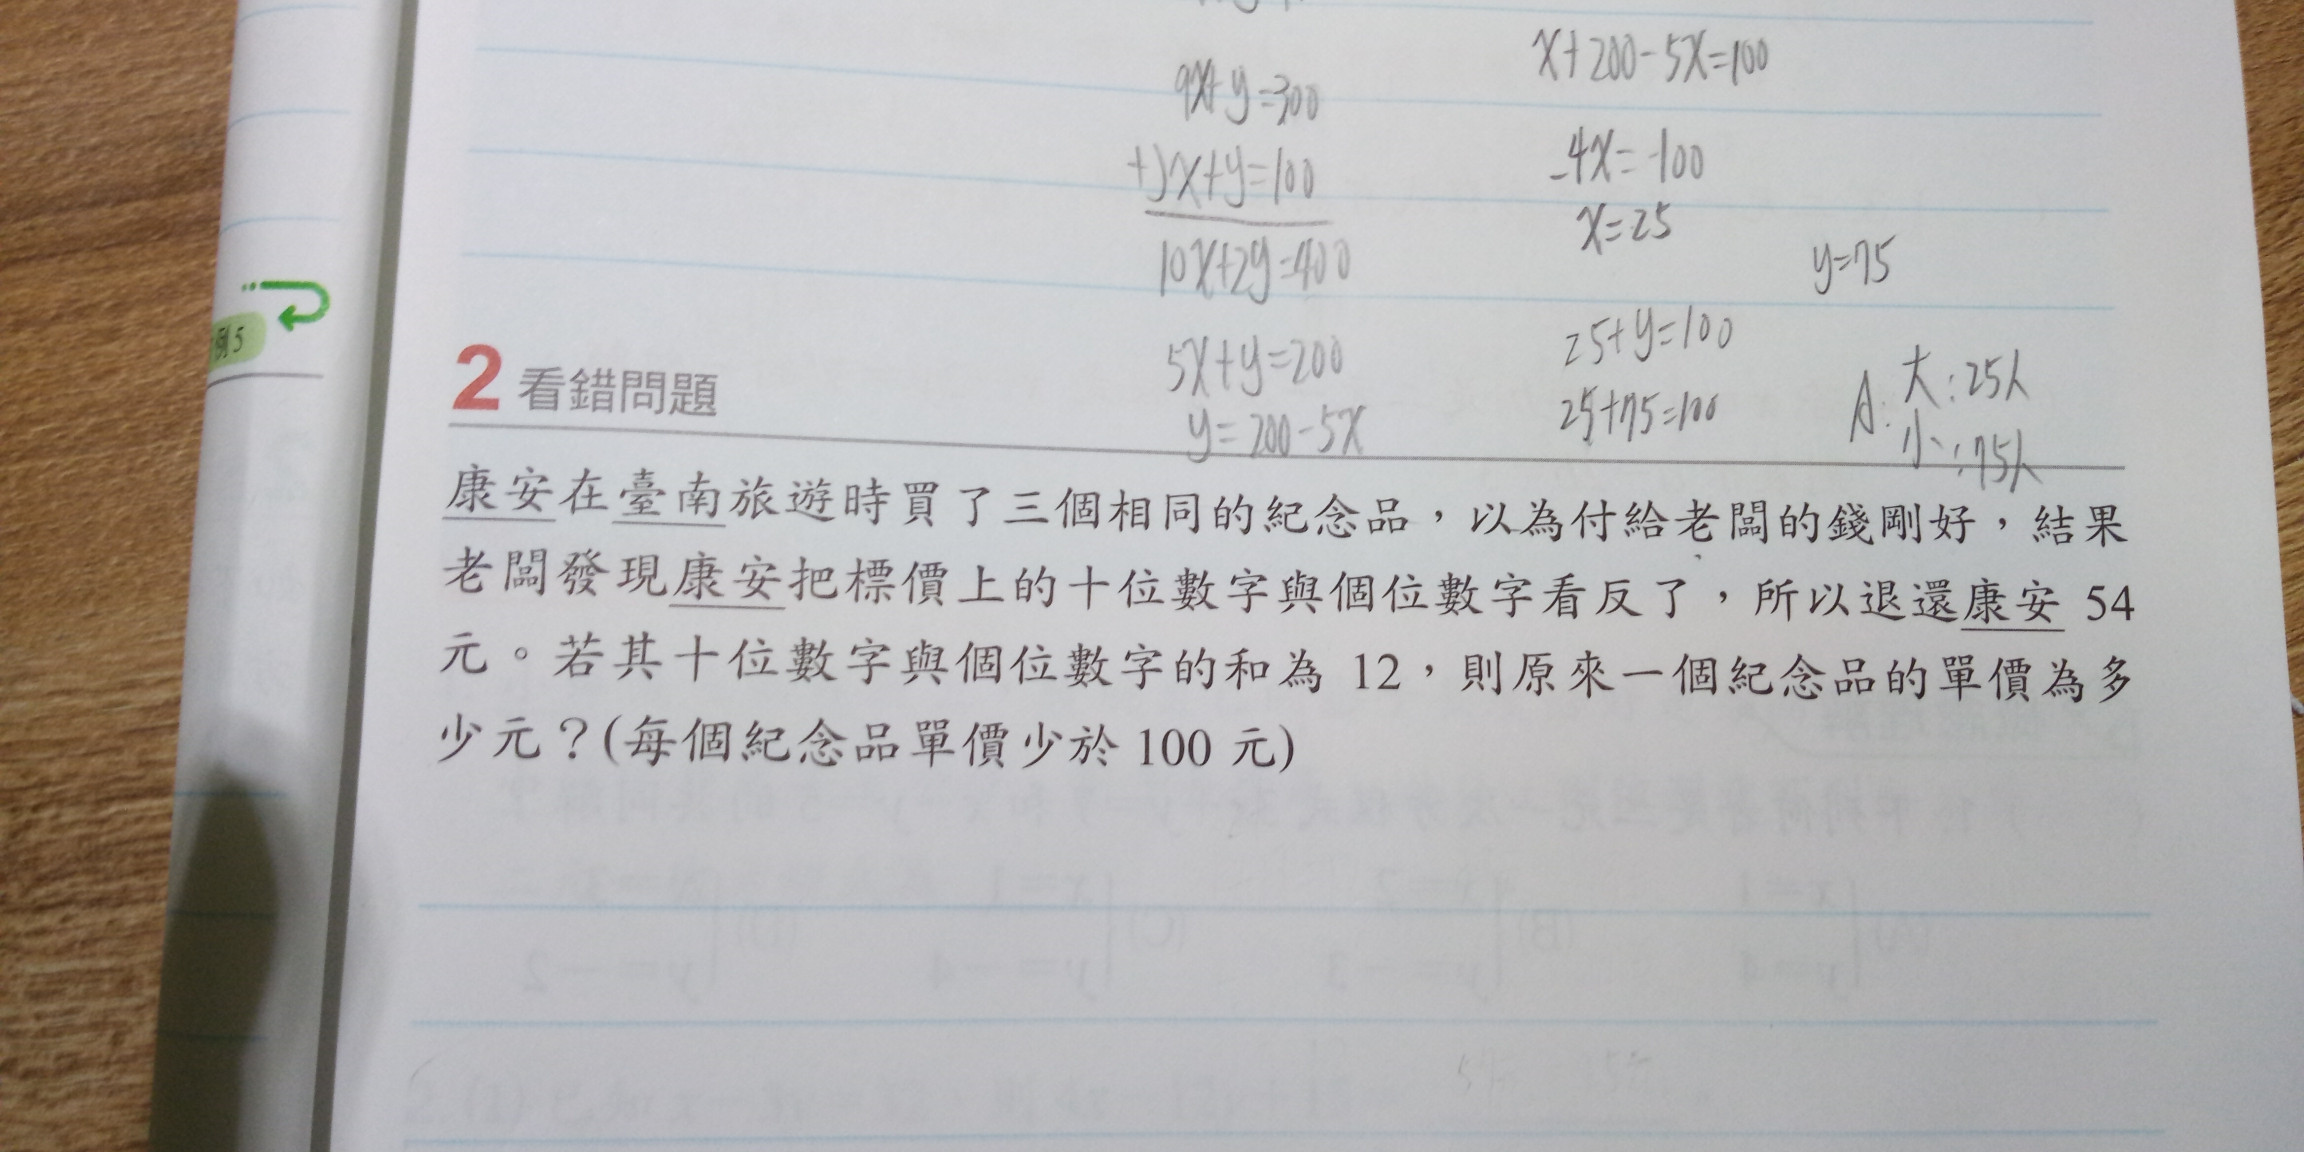 9x+y=300
+)x+y=100
10x+2y=400
5x+y=200
y=200-5x
x+200-5x=100
-4x=-100
x=25
y=75
25+y=100
25+75=100
A:大:25人
小:75人
例5
2 看錯問題
康安在臺南旅遊時買了三個相同的紀念品，以為付給老闆的錢剛好，結果
老闆發現康安把標價上的十位數字與個位數字看反了，所以退還康安 54
元。若其十位數字與個位數字的和為 12，則原來一個紀念品的單價為多
少元？(每個紀念品單價少於 100 元)